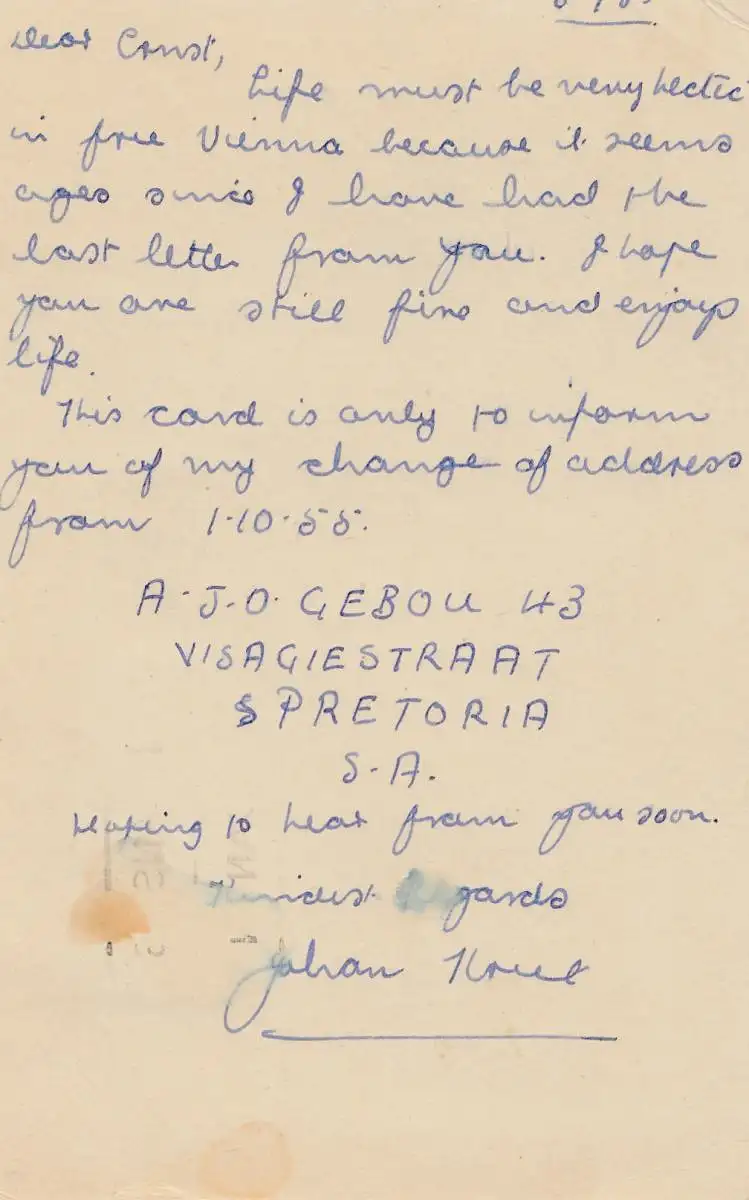 Dear Ernst,
Life must be very hectic
in free Vienna because it seems
ages since I have had the
last letter from you. I hope
you are still fine and enjoys
life.
This card is only to inform
you of my change of address
from 1.10.55.
A.J.O. GEBOU 43
VISAGIESTRAAT
PRETORIA
S.A.
Hoping to hear from you soon.
Kindest Regards
Johan